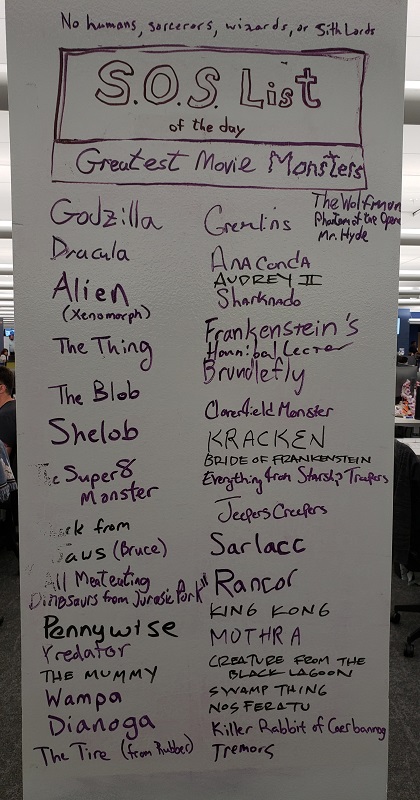 No humans, sorcerors, wizards, or Sith Lords
S.O.S. List
of the day
Greatest Movie Monsters
Godzilla
Dracula
Alien
(Xenomorph)
The Thing
The Blob
Shelob
Super 8
Monster
from
Jaws (Bruce)
All Meat eating
Dinosaurs from Jurasic Park"
Pennywise
Predator
THE MUMMY
Wampa
Dianoga
The Tire (from Rubber)
Gremlins
ANACONDA
AUDREY II
Sharknado
Frankenstein's
Hannibal Lecter
Brundlefly
Cloverfield Monster
KRACKEN
BRIDE OF FRANKENSTEIN
Everything from Starship Troopers
Jeepers Creepers
Sarlacc
Rancor
KING KONG
MOTHRA
CREATURE FROM THE
BLACK LAGOON
SWAMP THING
NOSFERATU
Killer Rabbit of Caerbannog
Tremors
The Wolfman
Phantom of the Opera
Mr. Hyde